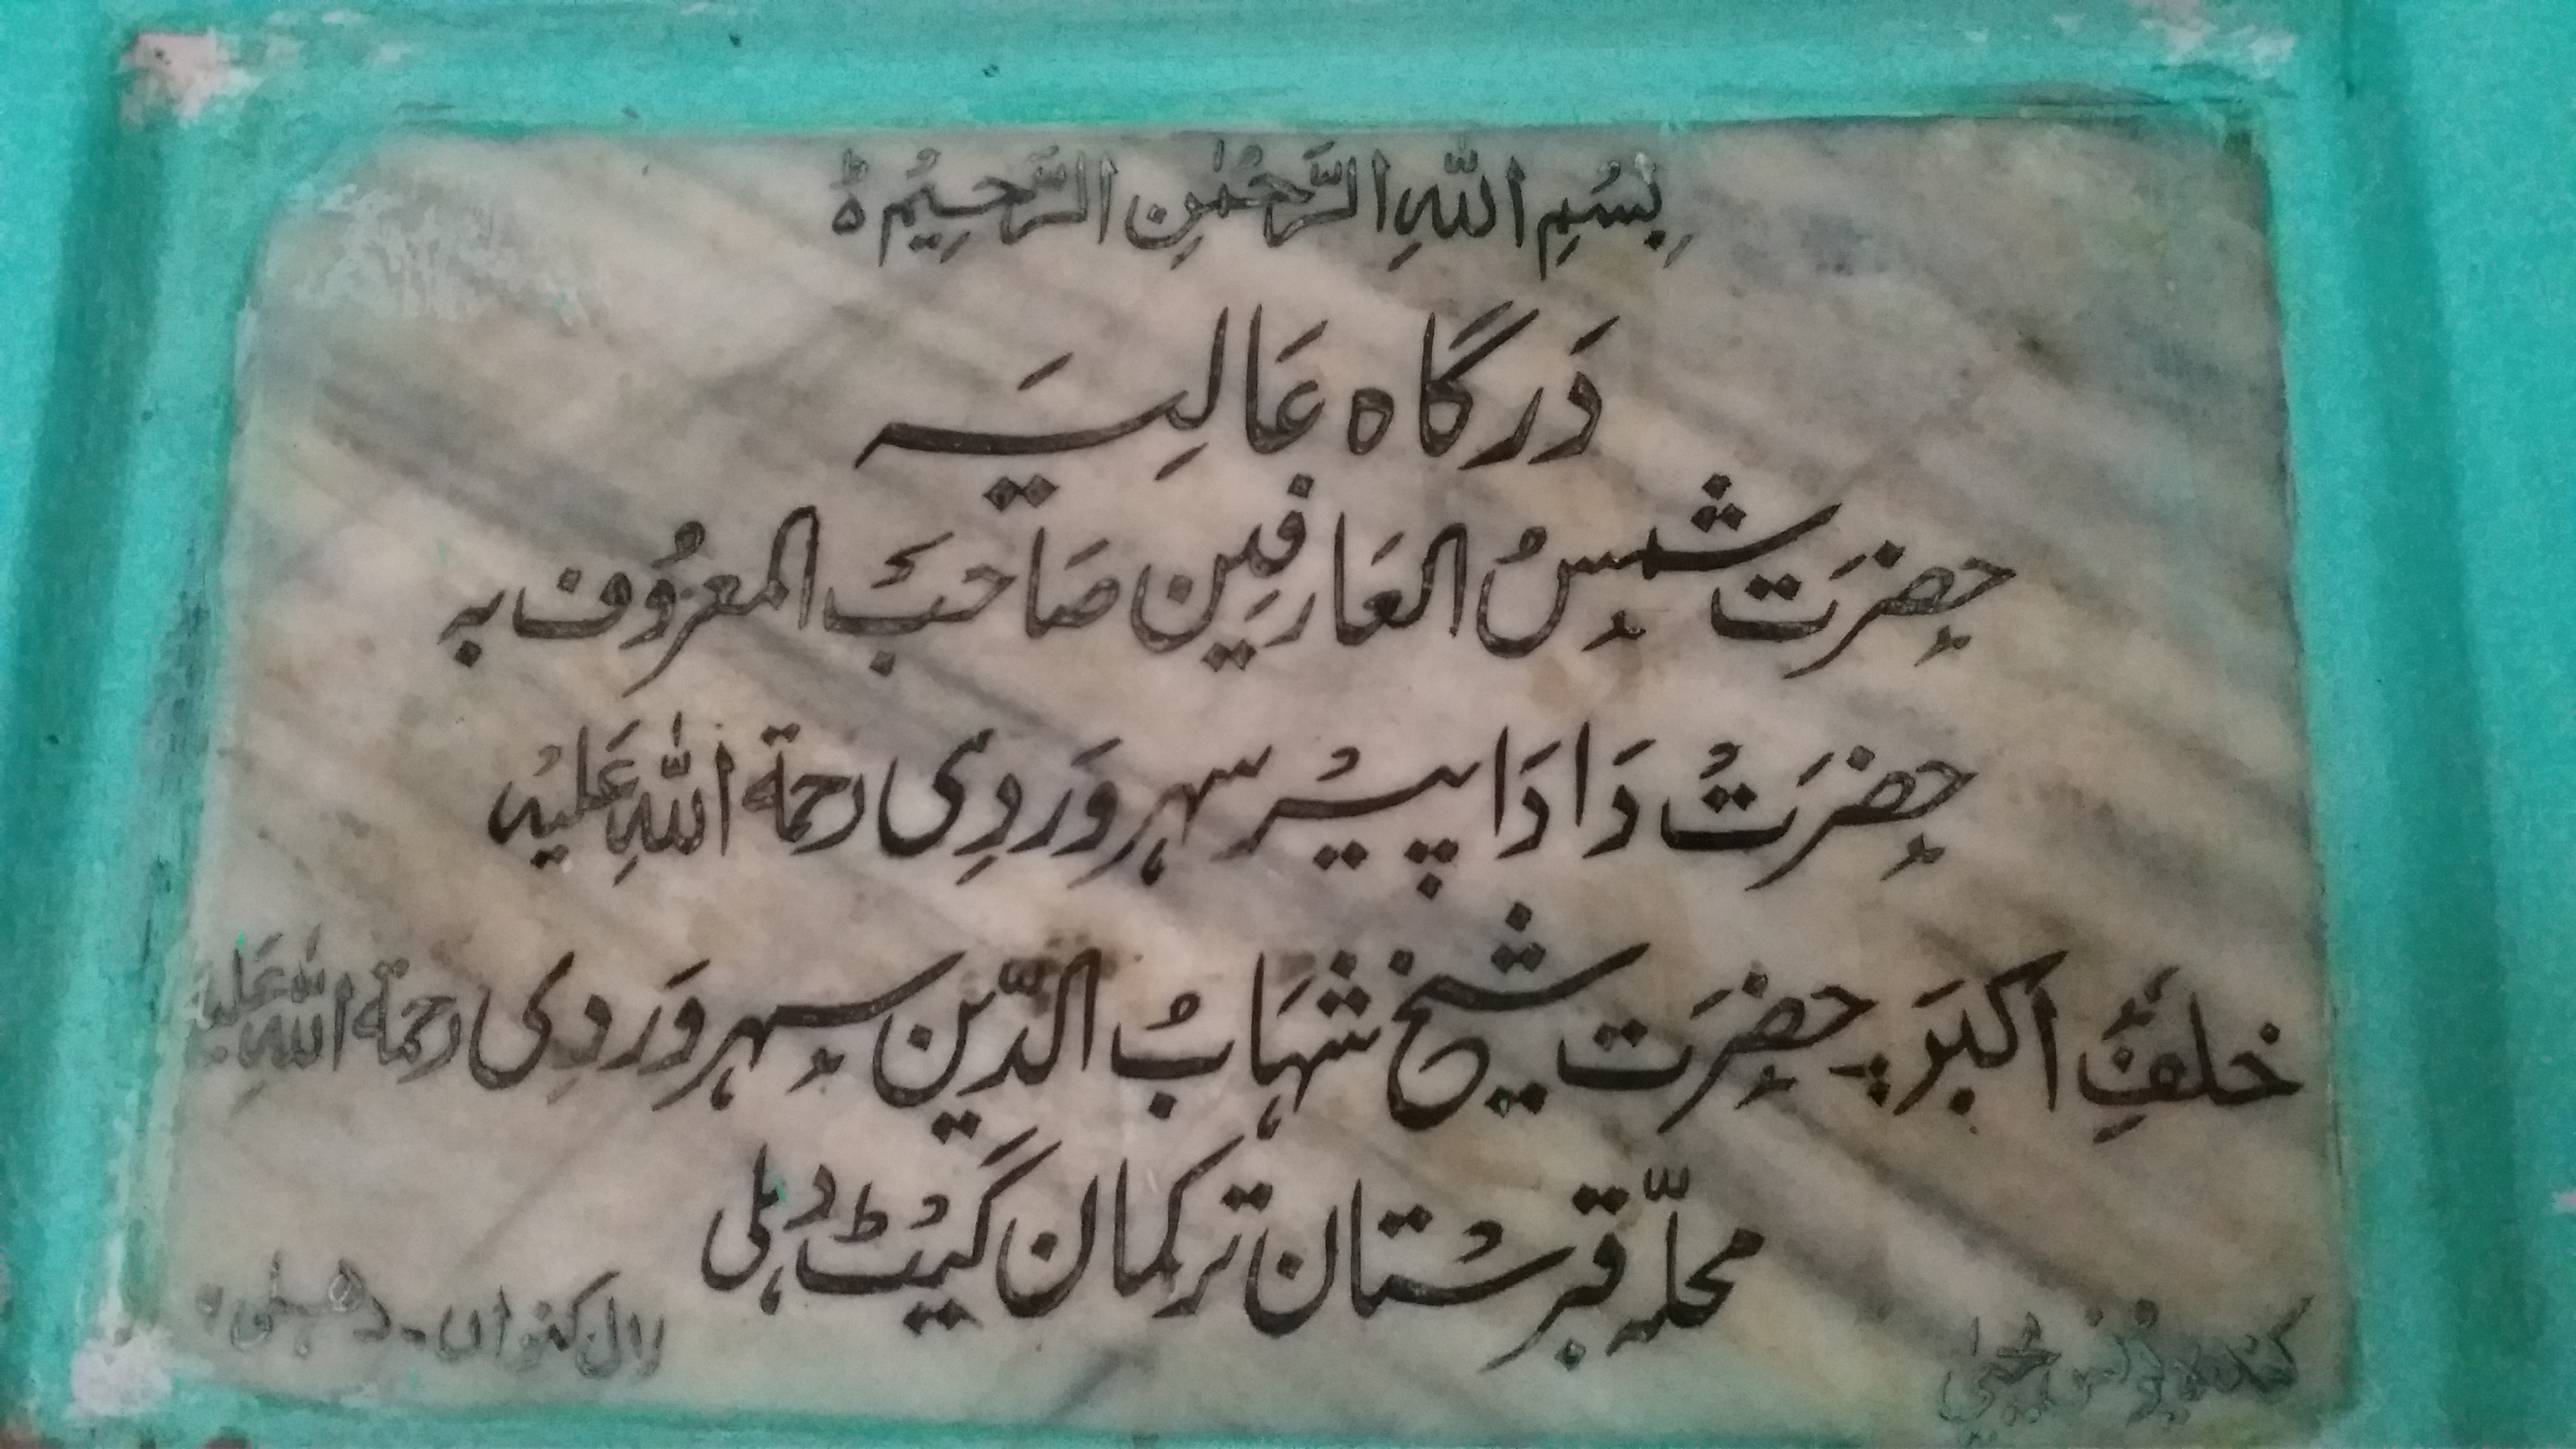 بِسْمِ اللّٰهِ الرَّحْمٰنِ الرَّحِيْمِ ط
دَرگاہ عَالِیَہ
حضرَت شمسُ العَارفِین صَاحبَ المعرُوف بہ
حضرَتْ دَادَا پیْر سہروَردِی رحمۃ اللّٰہِ عَلیْہ
خلفِ اکبَر حضرَت شیخ شہَابُ الدّین سہروَردِی رحمۃ اللّٰہِ عَلیہ
محلّہ قبرسْتان ترکمان گیْٹ دہلی
لال کنواں - دھلی